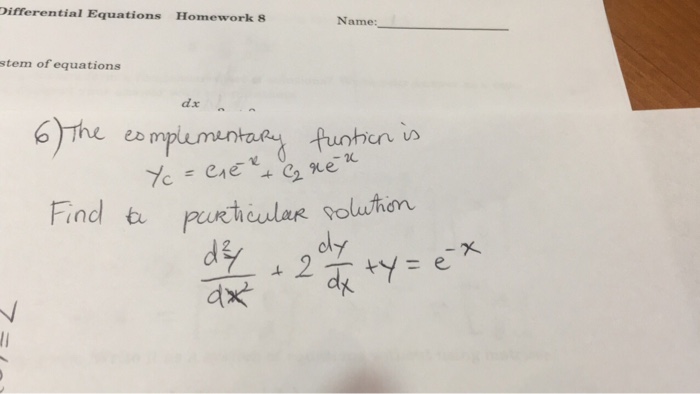 Differential Equations Homework 8 Name:
stem of equations
dx
6) The complementary funticn is
Yc = c1e^-x + C2 xe^-x
Find a particular solution
d²y/dx² + 2 dy/dx + y = e^-x